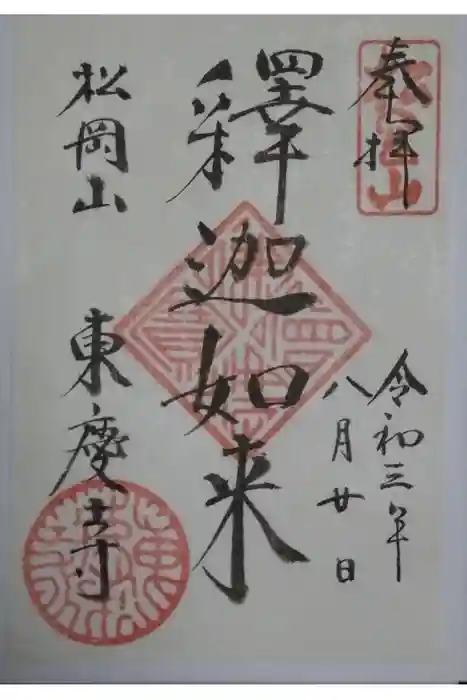 奉拝
令和三年
八月廿日
釋迦如来
松岡山
東慶寺